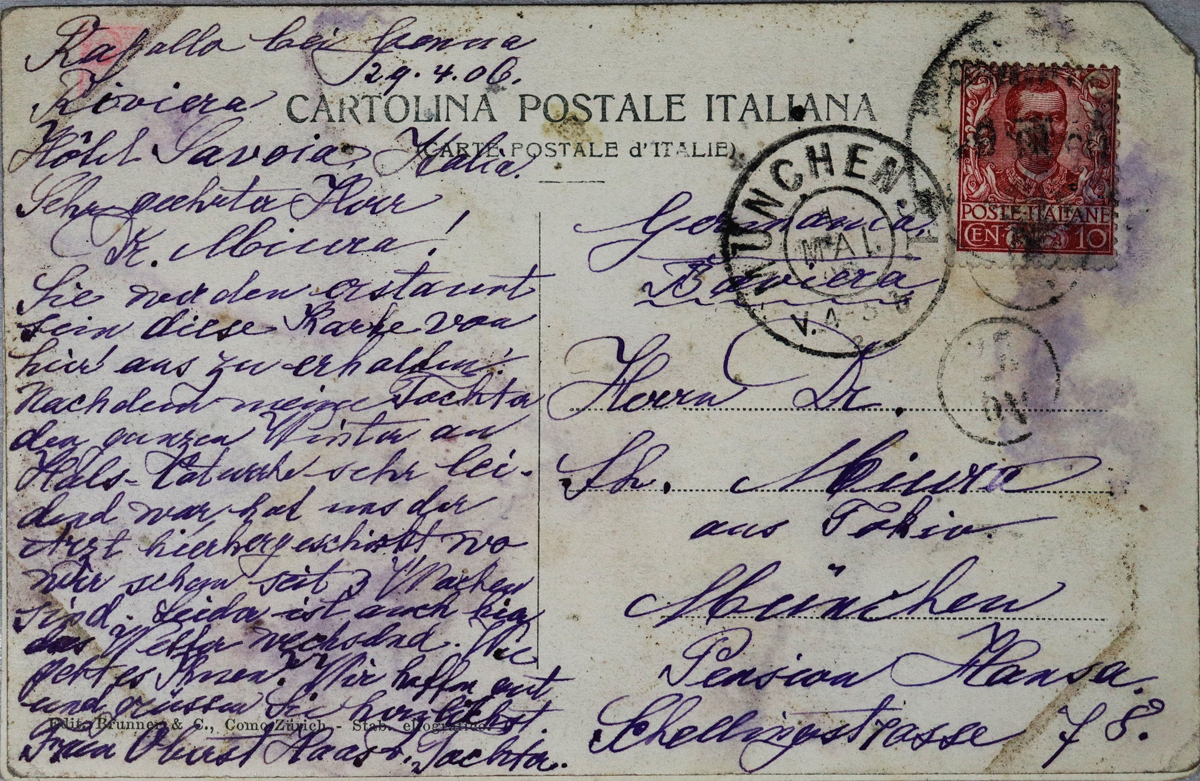 Rapallo bei Genua
29.4.06.
Riviera
CARTOLINA POSTALE ITALIANA
(CARTE POSTALE d'ITALIE)
Hôtel Savoia, Italia.
Sehr geehrter Herr
Dr. Miura!
Sie werden erstaunt
sein diese Karte von
hier aus zu erhalten!
Nachdem meine Tochter
den ganzen Winter an
Hals-Catarrhe sehr lei-
dend war hat uns der
Arzt hierher geschickt wo
wir schon seit 3 Wochen
sind. Leider ist auch hier
das Wetter wechselnd. Wie
geht es Ihnen? Wir hoffen gut
und grüssen Sie herzlichst
Frau Oberst Haas u. Tochter.
Edit. Brunner & C., Como-Zürich - Stab.
POSTE ITALIANE
CEN 10
MÜNCHEN
1
MAI
V. 4-5
Germania.
Baviera
Herrn Dr.
Miura
aus Tokio.
München
Pension Hansa.
Schellingstrasse 78.